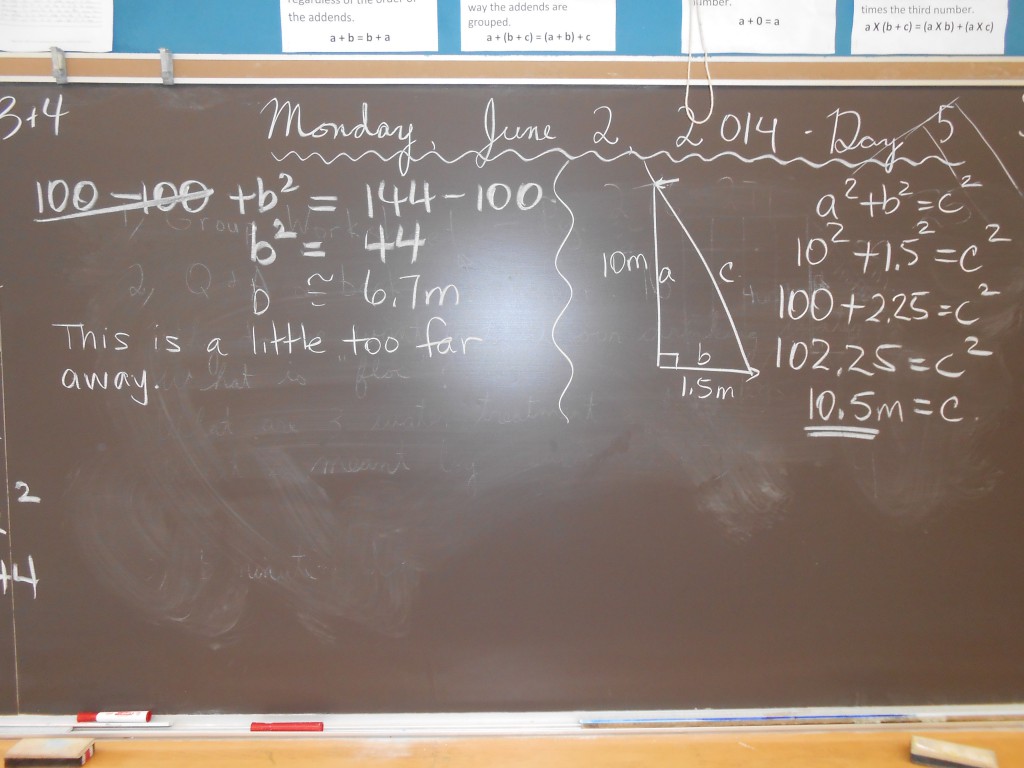 regardless of the order of
the addends.
a + b = b + a
way the addends are
grouped.
a + (b + c) = (a + b) + c
number.
a + 0 = a
times the third number.
a X (b + c) = (a X b) + (a X c)
3+4
Monday, June 2, 2014 - Day 5
100 - 100 + b² = 144 - 100
b² = 44
b ≅ 6.7m
This is a little too far
away.
10m
a
c
b
1.5m
a² + b² = c²
10² + 1.5² = c²
100 + 2.25 = c²
102.25 = c²
10.5m = c.
2
+4